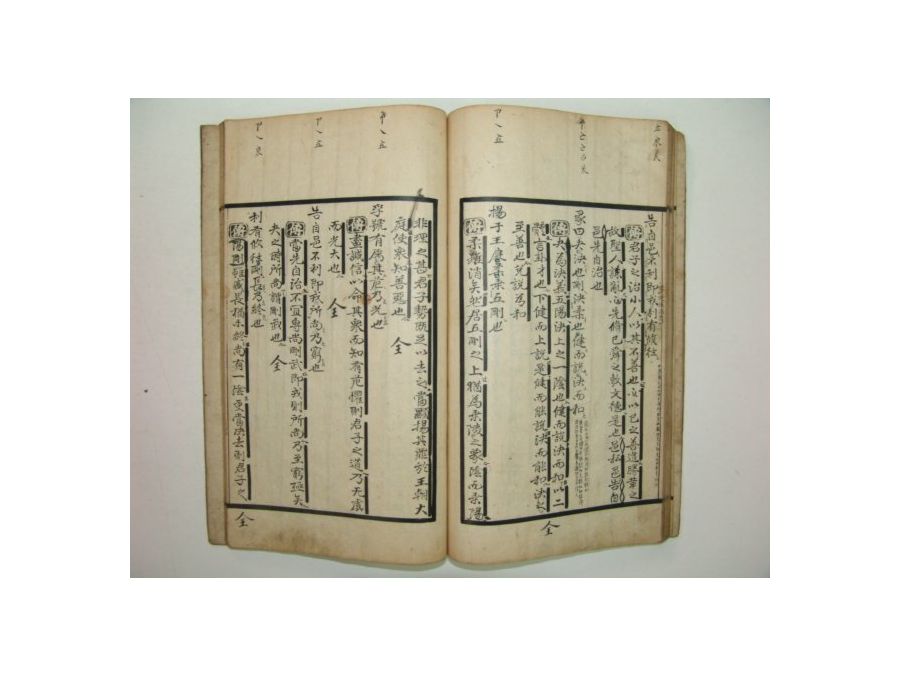 告自邑不利即戎利有攸往
傳 君子之治小人以其不善也必以己之善道勝革之
故聖人誅亂必先修己舜之敷文德是也邑私邑告自
邑先自治也
彖曰夬決也剛決柔也健而說決而和
傳 夬為決義五陽決上之一陰也健而說決而和以二
體言卦才也下健而上說是健而能說決而能和決之
至善也兌說為和
揚于王庭柔乘五剛也
傳 柔雖消矣然居五剛之上猶為乘陵之象陰而乘陽
非理之甚君子勢既足以去之當顯揚其罪於王朝大
庭使衆知善惡也 全
孚號有厲其危乃光也
傳 盡誠信以命其衆而知有危懼則君子之道乃无虞
而光大也 全
告自邑不利即戎所尚乃窮也
傳 當先自治不宜專尚剛武即戎則所尚乃至窮極矣
夬之時所尚謂剛武也 全
利有攸往剛長乃終也
傳 陽剛雖盛長猶未終尚有一陰更當決去則君子之
全
全